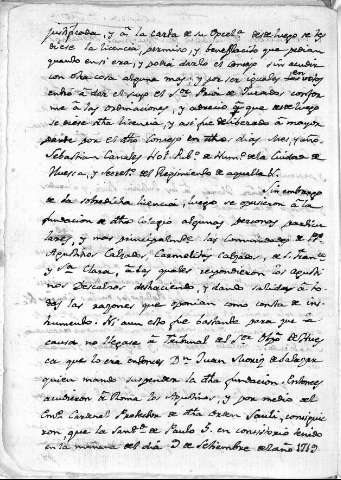 justificada, y à la carta de su Excelª. desde luego se les
diese la licencia, permiso, y beneplacito que pedian
quando en sí era, y podia darlo el consejo sin acudir
con otra cosa alguna mas; y por ser iguales los votos
entró à dar el suyo el Sor. Prior de Jurados confor
me à las ordinaciones, y adrecio que desde luego
se diese dha licencia, y asi fue deliberado à mayor
parte por el dho Consejo en dhos dias, mes, y año.
Sebastian Canales Not. Pubco. de Numº. de la Ciudad de
Huesca, y Secretº. del Regimiento de aquella &.
Sin embargo
de la sobredicha licencia, luego se opusieron à la
fundacion de dho Colegio algunas personas particu
lares, y mas principalmte. las Comunidades de PP.
Agustinos Calzados, Carmelitas Calzados, de S. Franco.
y Sta. Clara, à las quales respondieron los agusti
nos Descalzos deshaciendo, y dando salidas à to-
das las razones que oponian como consta de ins-
trumento. Ni aun esto fue bastante para que la
causa no llegase à Tribunal del Sor. Obpo. de Hues
ca que lo era entonces Dn. Juan Moriz de Salazar
quien mandó suspender la dha fundacion. Entonces
acudieron à Roma los Agustinos, y por medio del
Emo. Cardenal Protector de dha Orden Sauli, consiguie
ron, que la Sandd. de Paulo 5. en consistorio tenido
en la mañana del dia 2 de Setiembre del año 1719